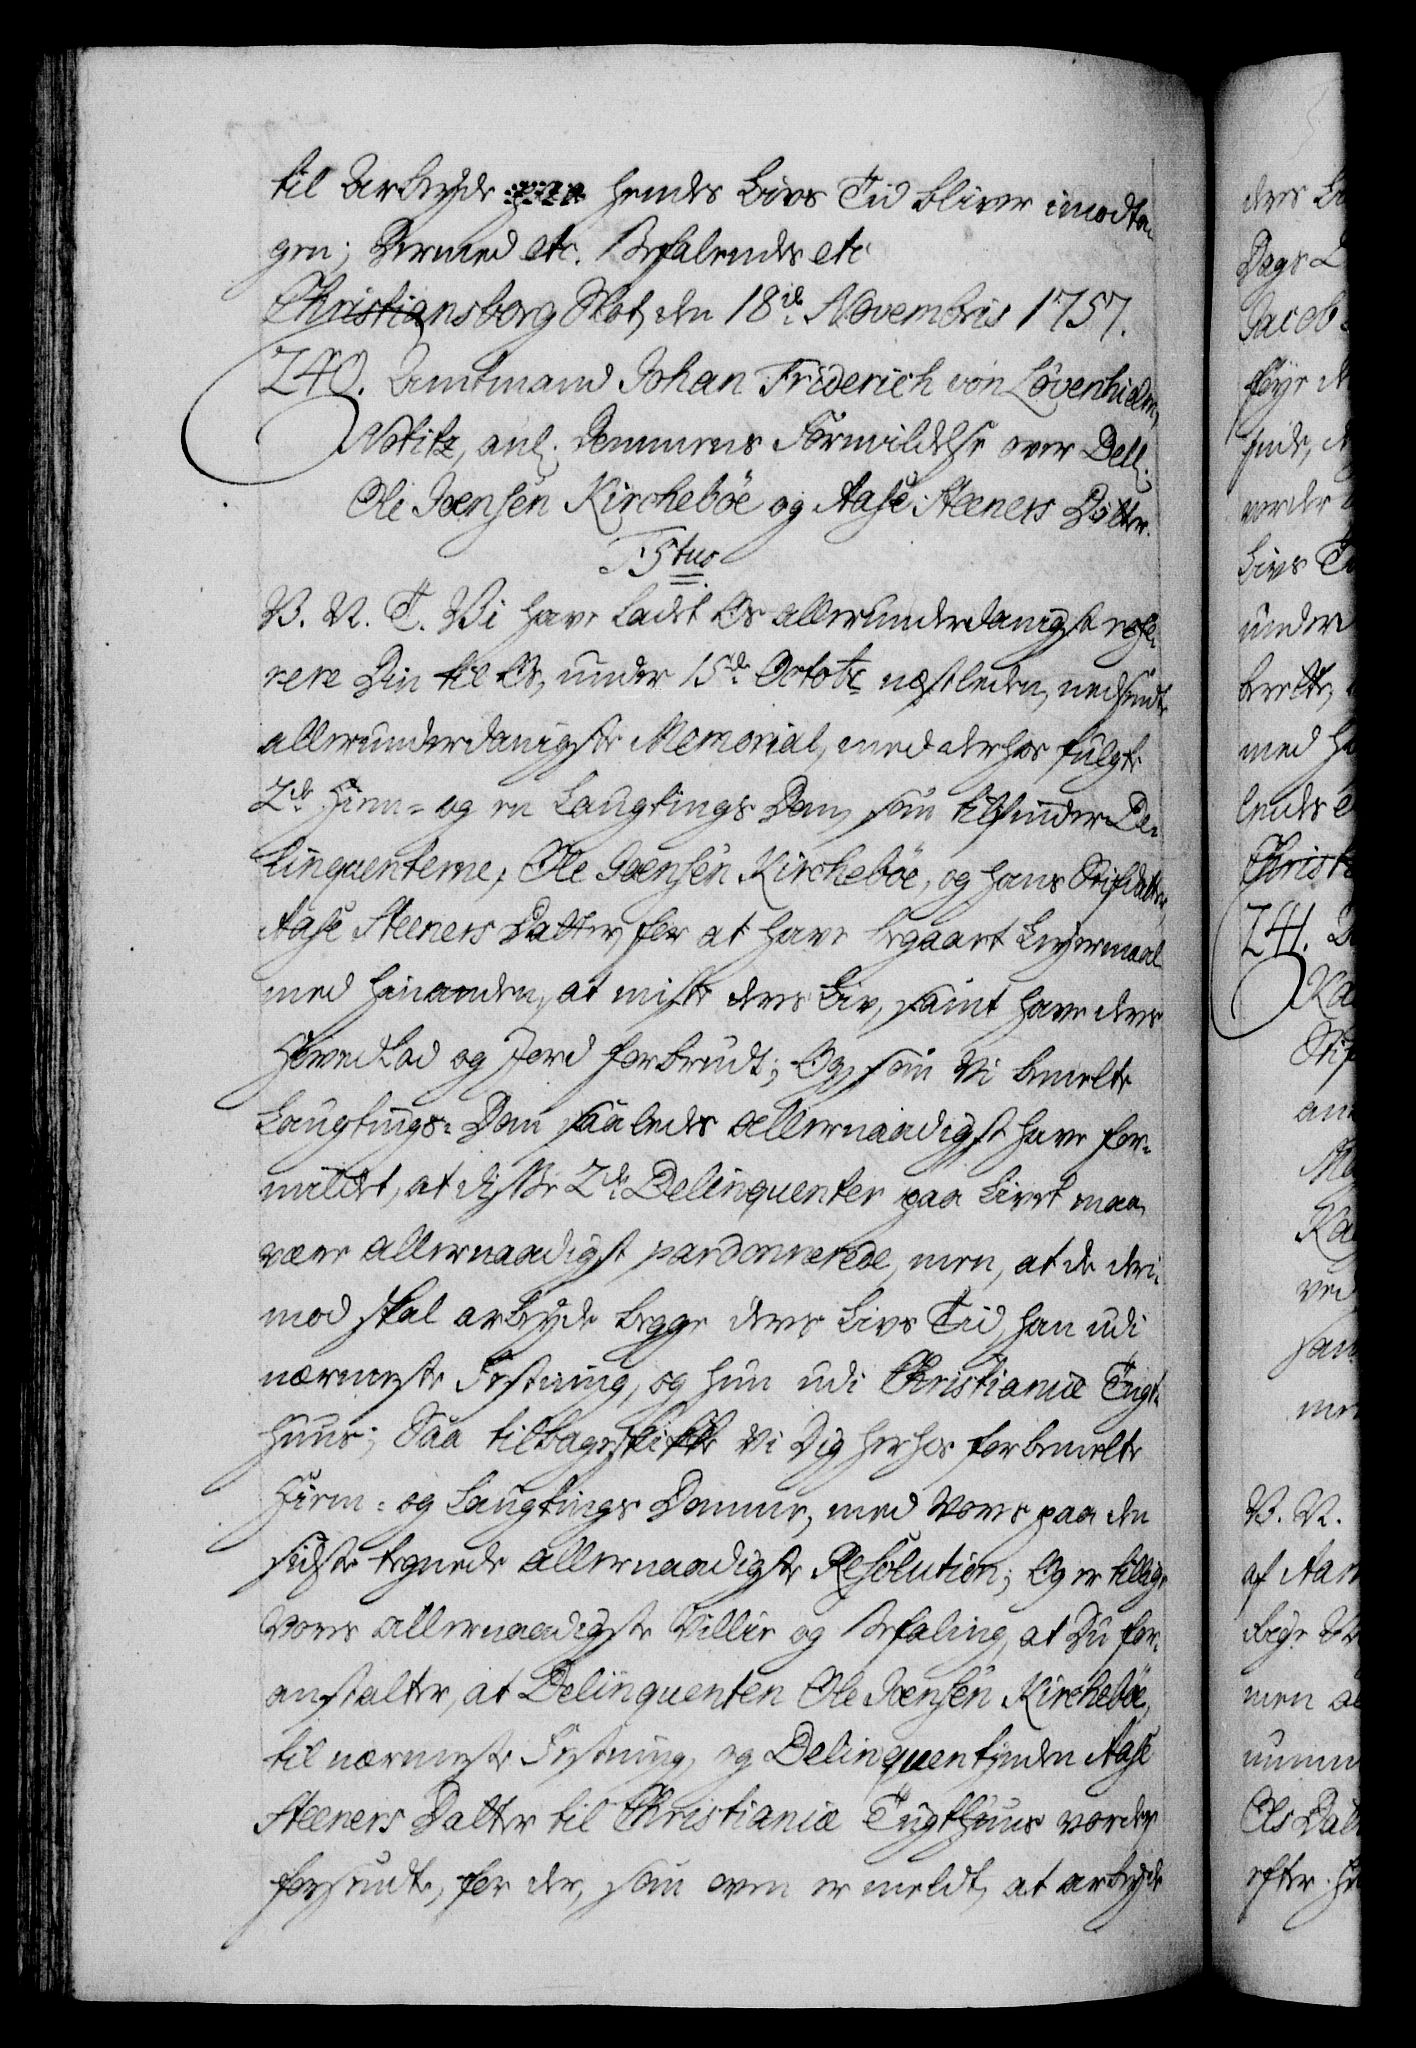 til Arbeyde hendes Livs Tid bliver imodta-
gen; Dermed etc. Befalendes etc
Christiansborg Slot, den 18de Novembris 1757.
240. Amtmand Johan Friderich von Løvenhielm,
Notitz, anl. Dommens Formildelse over Dell.
Ole Joensen Kirchebøe og Aase Steeners Datter.
TStus
V. N. T. Vi have ladet Os allerunderdanigst refe-
rere Din til Os, under 15de Octobr næstleden, nedsendte
allerunderdanigste Memorial, med derhos fulgte
2de Hiem- og en Laugtings Dom, som tilfinder De-
linquenterne, Ole Joensen Kirchebøe, og hans Stifdatter
Aase Steeners Datter, for at have begaaet Leyermaal
med hinanden, at miste deres Liv, samt have deres
Hoved Lod og Jord forbrudt; Og, som Vi bemelte
Laugtings-Dom saaledes allernaadigst have for-
mildet, at disse 2de Delinquenter paa Livet maa
være allernaadigst pardonnerede, men, at de deri-
mod skal arbeyde begge deres Livs Tid, han udi
nærmeste Festning, og hun udi Christiania Tugt-
huus; Saa tilbageskikke Vi Dig herhos forbemelte
Hiem- og Laugtings Domme, med Vores paa den
sidste tegnede allernaadigste Resolution; Og er tillige
Vores allernaadigste Villie og Befaling, at Du for-
anstalter, at Delinquenten Ole Joensen Kirchebøe,
til nærmeste Festning, og Delinquentinden Aase
Steeners Datter til Christiania Tugthuus vorder
forsendt, for der, som oven er meldt, at arbeyde